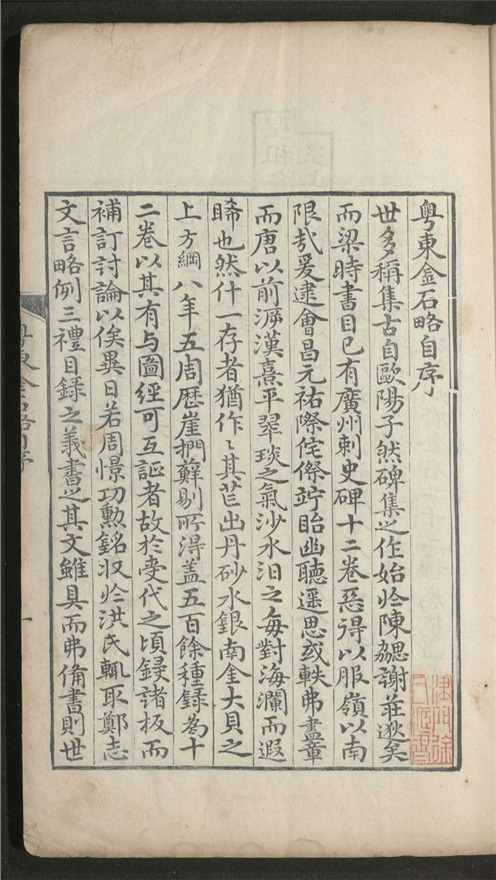 粤東金石略自序
世多稱集古自歐陽子然碑集之作始於陳勰謝莊邈矣
而梁時書目已有廣州刺史碑十二卷惡得以服嶺以南
限哉爰逮會昌元祐際侘傺竚眙幽聽遥思或軼弗盡章
而唐以前泝漢熹平翠琰之氣沙水汩之每對海瀾而遐
睎也然什一存者猶作作其芒出丹砂水銀南金大貝之
上方綱八年五周歴崖捫蘚剔所得蓋五百餘種録為十
二卷以其有与圖經可互証者故於受代之頃鋟諸板而
補訂討論以俟異日若周憬功勲銘収於洪氏輒取鄭志
文言略例三禮目録之義書之其文雖具而弗備書則世
粤東金石略自序
一